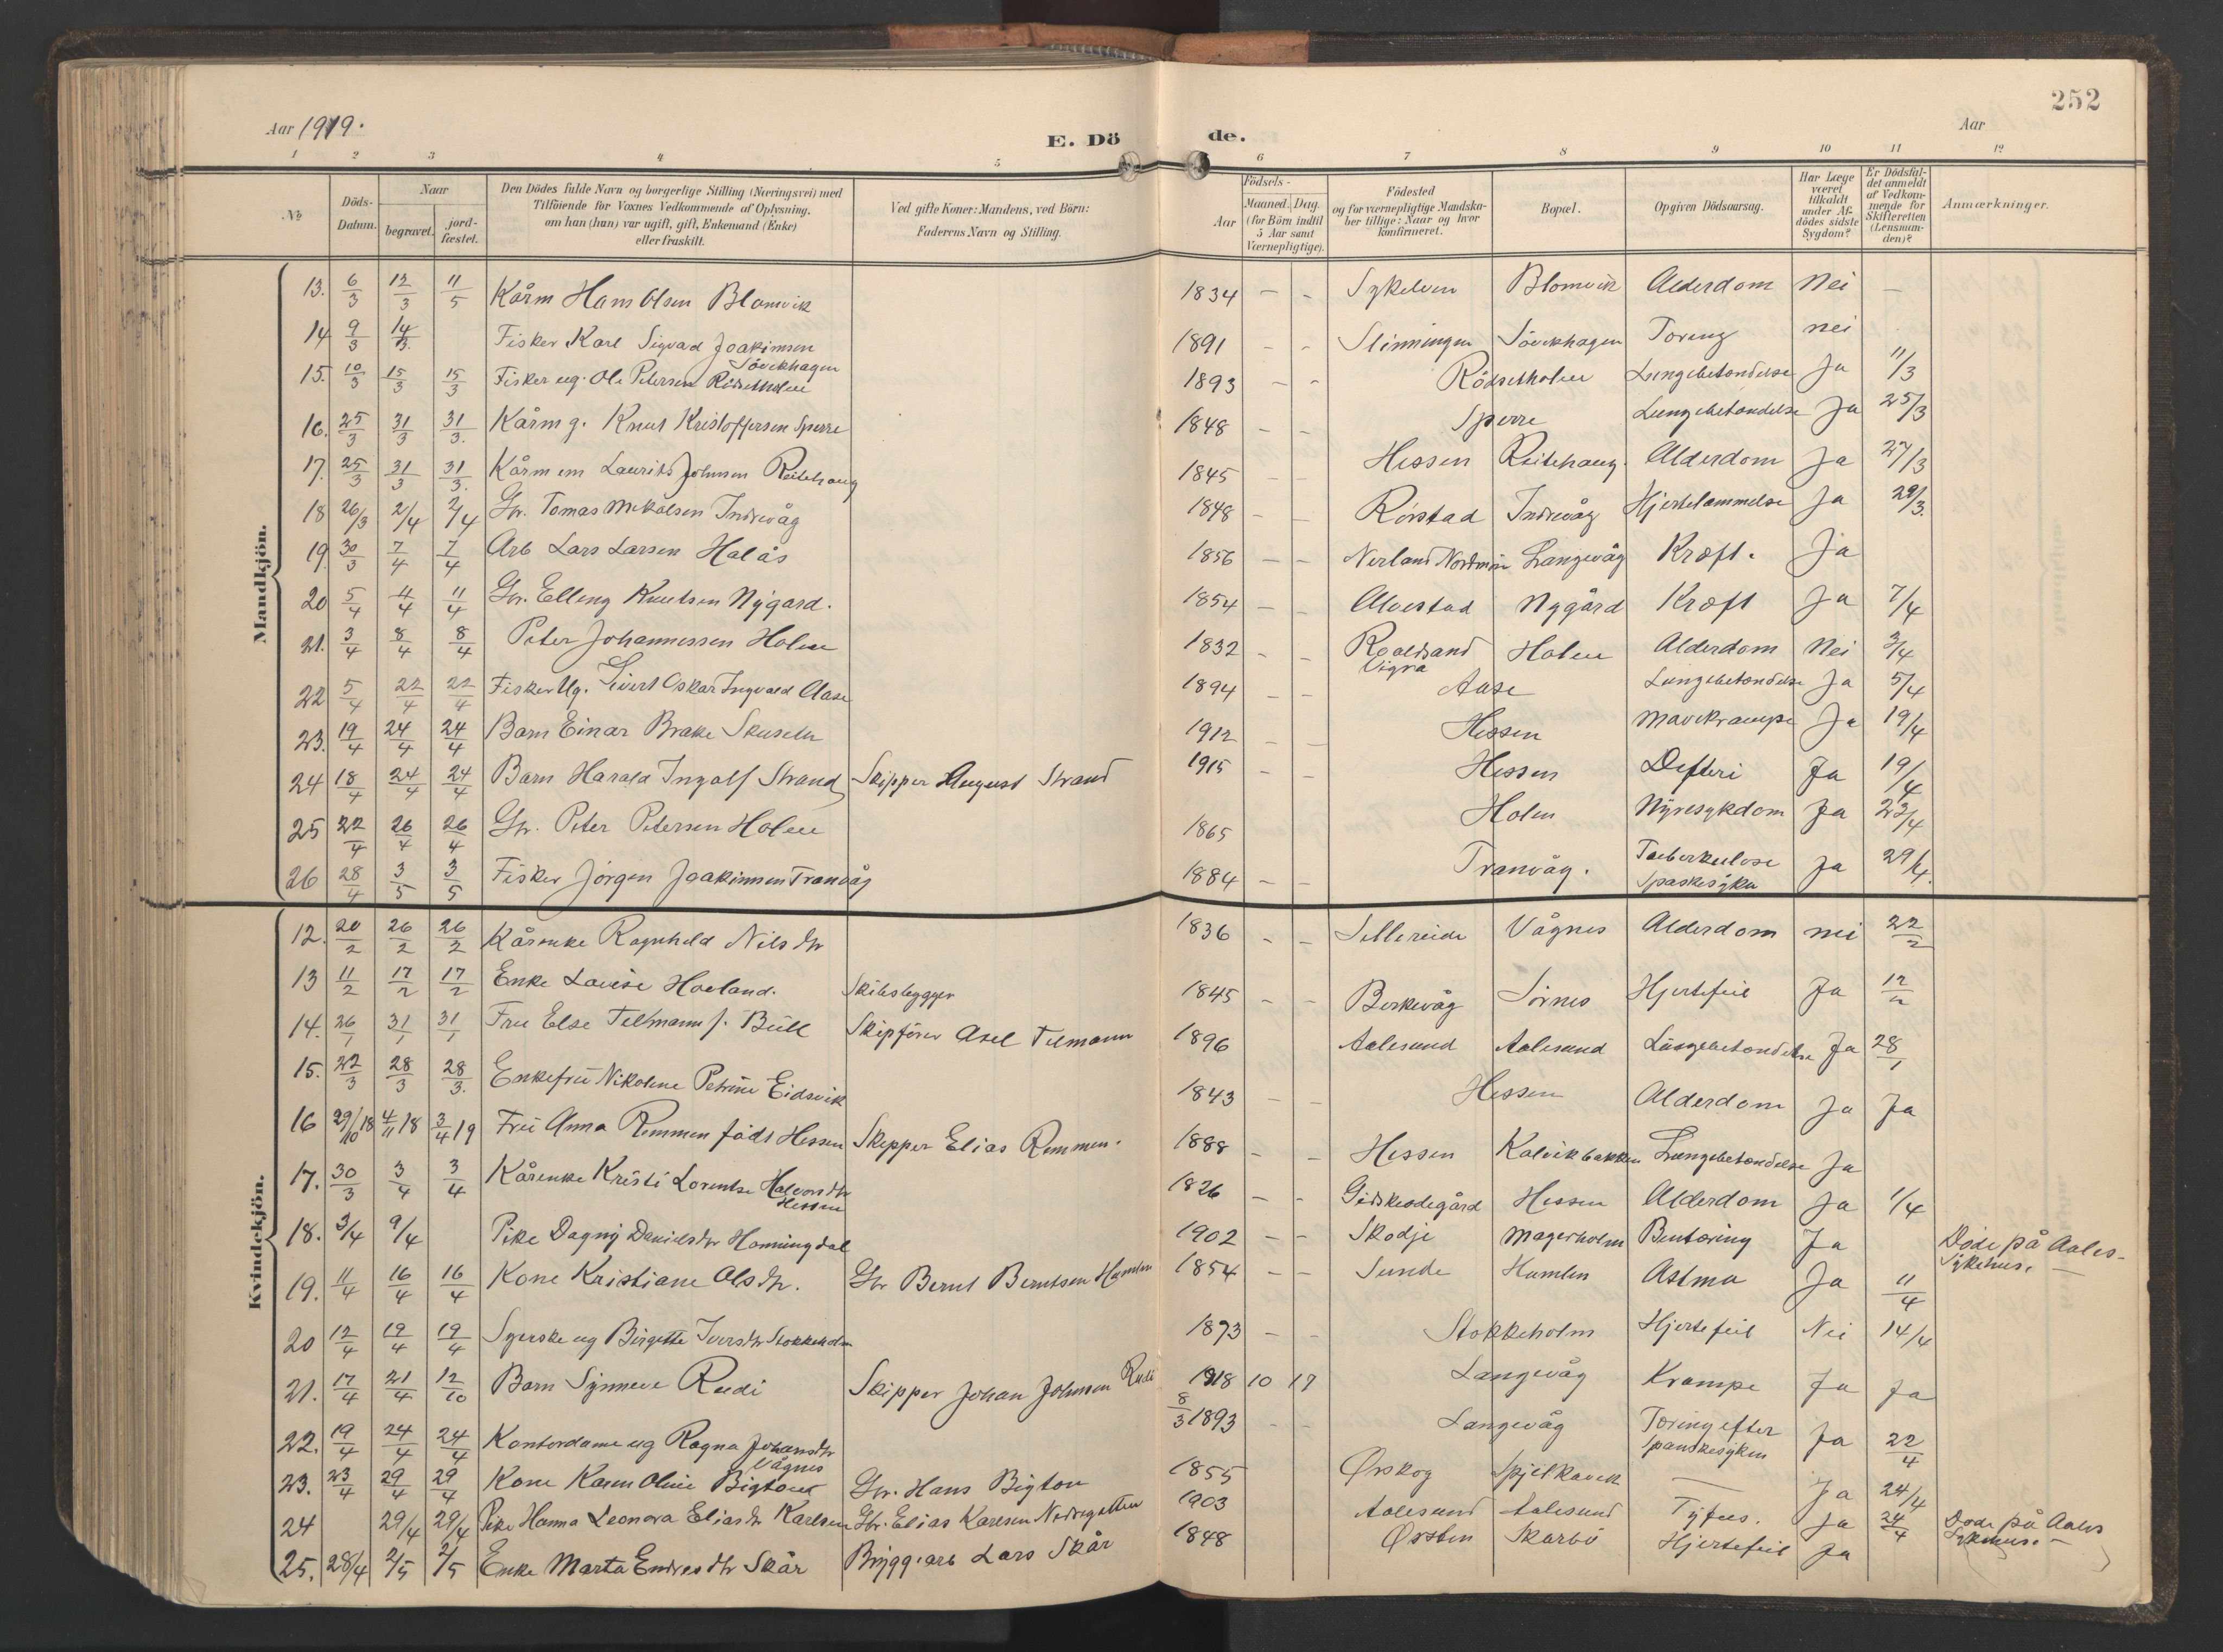 252
Aar 1919.
E. Döde.
Aar
1 2 3 4 5 6 7 8 9 10 11 12
№
Döds-Datum.
Naar
begravet.
jord-fæstet.
Den Dödes fulde Navn og borgerlige Stilling (Næringsvei) med
Tilföiende for Voxnes Vedkommende af Oplysning,
om han (hun) var ugift, gift, Enkemand (Enke)
eller fraskilt.
Ved gifte Koner: Mandens, ved Börn:
Faderens Navn og Stilling.
Födsels-
Aar
Maaned. Dag.
(for Börn indtil
5 Aar samt
Værnepligtige).
Födested
og for værnepligtige Mandska-
ber tillige: Naar og hvor
konfirmeret.
Bopæl.
Opgiven Dödsaarsag.
Har Læge
været
tilkaldt
under Af-
dödes sidste
Sygdom?
Er Dödsfal-
det anmeldt
af Vedkom-
mende for
Skifteretten
(Lensman-
den)?
Anmærkninger.
Mandkjön.
13. 6/3 12/3 11/5 Kårm Hans Olsen Blomvik 1834 - - Sykelven Blomvik Alderdom Nei -
14 9/3 14/3 Fisker Karl Sigvad Joakimsen Sövikhagen 1891 - - Slinningen Sövikhagen Toreng nei
15. 10/3 15/3 15/3 Fisker ug. Ole Petersen Rödsetholen 1893 - - Rödsetholen Lungebetændelse Ja 11/3
16. 25/3 31/3 31/3. Kårm g. Knut Kristoffersen Sperre 1848 - - Sperre Lungebetændelse Ja 25/3
17. 25/3 31/3 31/3. Kårm em Laurits Johnsen Reitehaug 1845 - - Hessen Reitehaug. Alderdom Ja 27/3
18 26/3 2/4 2/4 Gbr. Tomas Mikalsen Indrevåg 1848 - - Rörstad Indrevåg Hjertelammelse Ja 29/3.
19. 30/3 7/4 7/4 Arb Lars Larsen Halås 1856 - - Nerland Nordmör Langevåg Kræft. Ja
20 5/4 11/4 11/4 Gbr. Elling Knutsen Nygard. 1854 - - Alvestad Nygård Kræft Ja 7/4
21. 3/4 8/4 8/4 Peter Johannessen Holen 1832 - - Roaldsand Vigra Holen Alderdom Nei 3/4
22 5/4 22/4 22/4 Fisker Ug. Sivert Oskar Ingvald Aase 1894 - - Aase Lungebetændelse Ja 5/4
23. 19/4 24/4 24/4 Barn Einar Brake Skuseth 1912 - - Hessen Mavekrampe Ja 19/4
24 18/4 24/4 24/4 Barn Harald Ingolf Strand Skipper August Strand 1915 - - Hessen Defteri Ja 19/4
25 22/4 26/4 26/4 Gbr. Peter Petersen Holen 1865 Holen Nyresykdom Ja 23/4
26 28/4 3/5 3/5 Fisker Jörgen Joakimsen Tranvåg 1884 - - Tranvåg. Tuberkulose Spaskesyka Ja 29/4.
Kvindekjön.
12. 20/2 26/2 26/2 Kårenke Ragnhild Nils dtr 1836 - - Sellereide Vågnes Alderdom nei 22/2
13 11/2 17/2 17/2 Enke Lovise Hovland. Skibsbygger 1845 - - Berkevåg Sörnes Hjertefeil Ja 12/2
14. 26/1 31/1 31/1 Fru Else Tellmann f. Büll Skipförer Axel Tilmann 1896 Aalesund Aalesund Lungebetændelse Ja 28/1
15. 22/3 28/3 28/3. Enkefru Nikoline Petrine Eidsvik 1843 - - Hessen Alderdom Ja Ja
16 29/10 18 4/11 18 3/4 19 Fru Anna Remmen födt Hessen Skipper Elias Remmen. 1888 - - Hessen Kalvikbakken Lungebetændelse Ja
17. 30/3 3/4 3/4 Kårenke Kristi Lorentse Halvorsdtr Hessen 1826 - - Gidskeödegård Hessen Alderdom Ja 1/4
18. 3/4 9/4 Pike Dagny Davidsdtr Horningdal 1902 - - Skodje Magerholm Bentæring Ja Döde på Aales-sykehus.
19. 11/4 16/4 16/4 Kone Kristiane Olsdtr. Gbr Bernt Berntsen Humlen 1854 - - Sunde Humlen Astma Ja 11/4
20 12/4 19/4 19/4 Syerske ug Birgitte Iversdtr Stokkeholm 1873 - - Stokkeholm Hjertefeil Nei 14/4
21. 17/4 21/4 12/10 Barn Synneve Rudi Skipper Johan Johnsen Rudi 1918 10 17 Langevåg Krampe Ja Ja
22. 19/4 24/4 24/4 Kontordame ug Ragna Johansdtr Vågnes 8/3 1893 - - Langevåg Toring efter spanskesyken Ja 22/4
23. 23/4 29/4 29/4 Kone Karen Oline Bigton Gbr. Hans Bigton 1855 Ørskog Spjelkavik - Ja 24/4
24 29/4 29/4 Pike Hanna Leonora Eliasdtr Karlsen Gbr. Elias Karlsen 1903 Aalesund Aalesund Tyfus. Ja 24/4 Döde på Aales Sykehus.
25. 28/4 2/5 2/5 Enke Marta Endresdtr Skår Brygg.arb Lars Skår 1848 Ørsten Skarbö Hjertefeil Ja